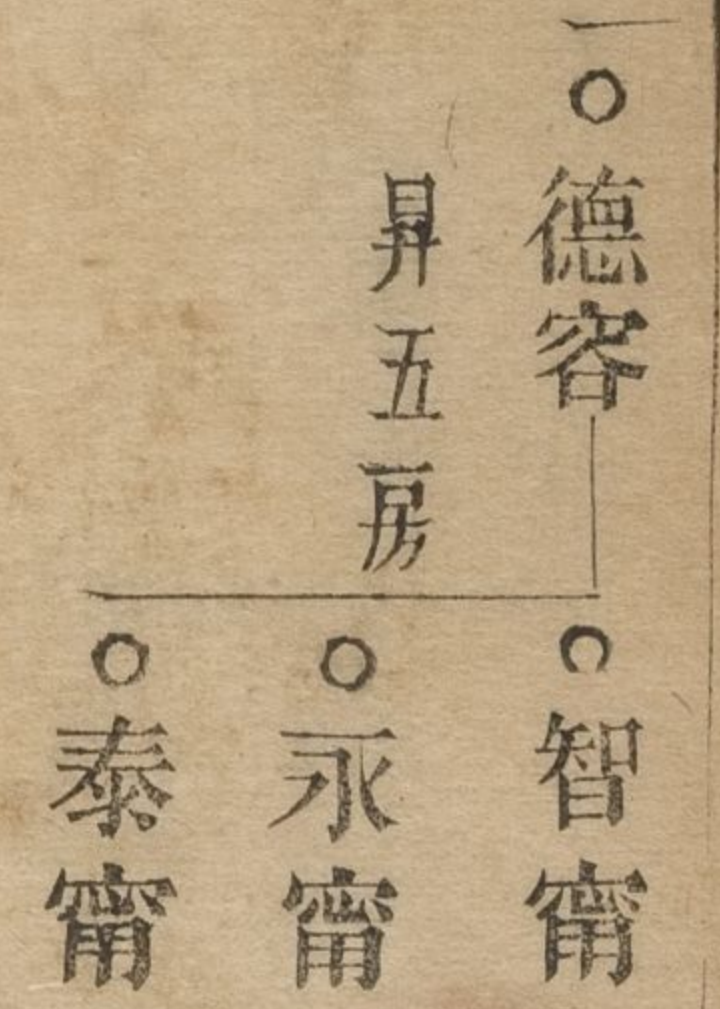 德容
昇五房
智甯
永甯
泰甯